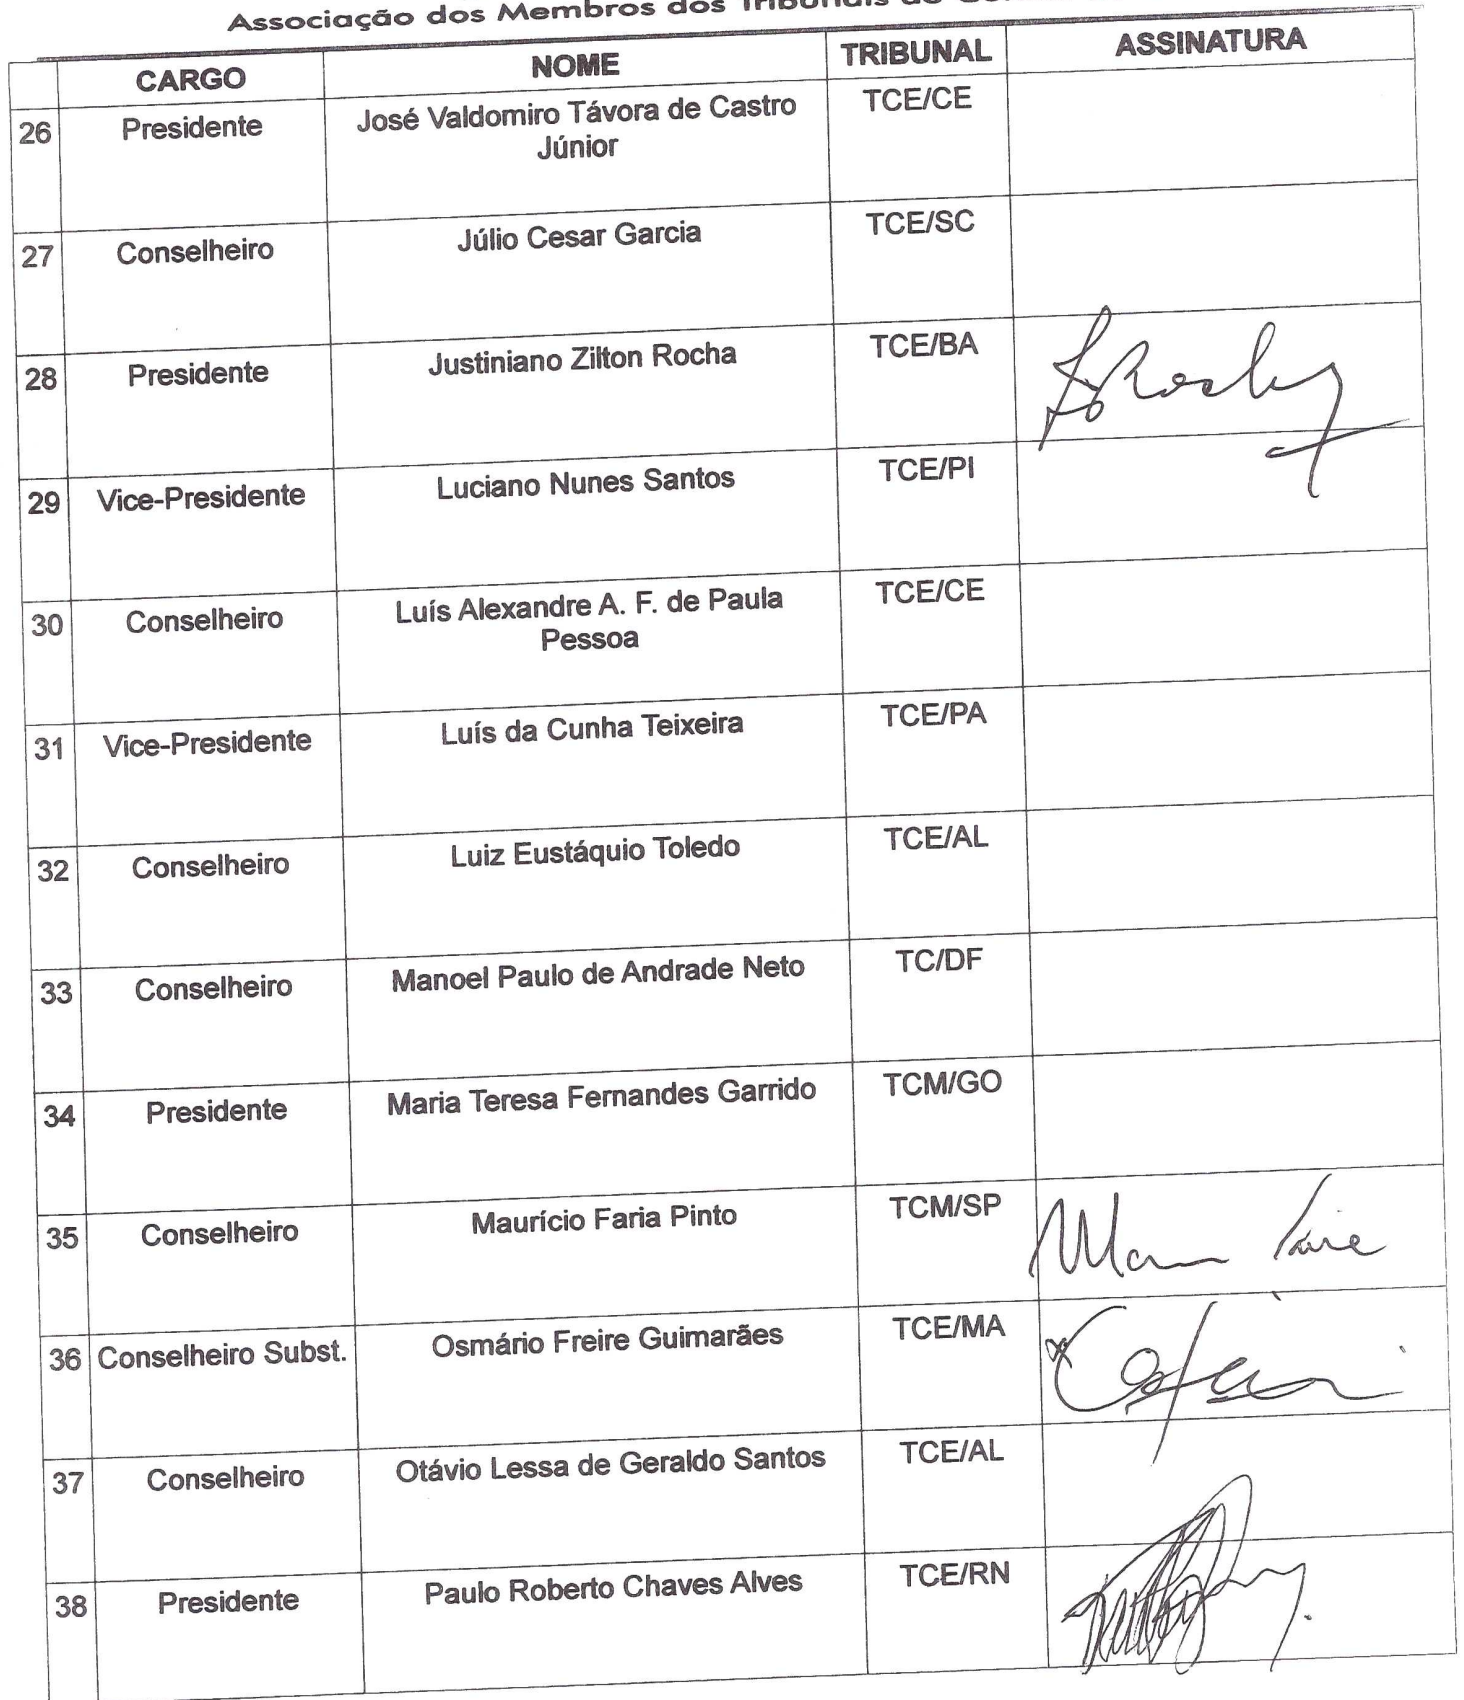 Associação dos Membros dos Tribunais de
CARGO NOME TRIBUNAL ASSINATURA
26 Presidente José Valdomiro Távora de Castro TCE/CE
Júnior
27 Conselheiro Júlio Cesar Garcia TCE/SC
28 Presidente Justiniano Zilton Rocha TCE/BA
29 Vice-Presidente Luciano Nunes Santos TCE/PI
30 Conselheiro Luís Alexandre A. F. de Paula TCE/CE
Pessoa
31 Vice-Presidente Luís da Cunha Teixeira TCE/PA
32 Conselheiro Luiz Eustáquio Toledo TCE/AL
33 Conselheiro Manoel Paulo de Andrade Neto TC/DF
34 Presidente Maria Teresa Fernandes Garrido TCM/GO
35 Conselheiro Maurício Faria Pinto TCM/SP
36 Conselheiro Subst. Osmário Freire Guimarães TCE/MA
37 Conselheiro Otávio Lessa de Geraldo Santos TCE/AL
38 Presidente Paulo Roberto Chaves Alves TCE/RN